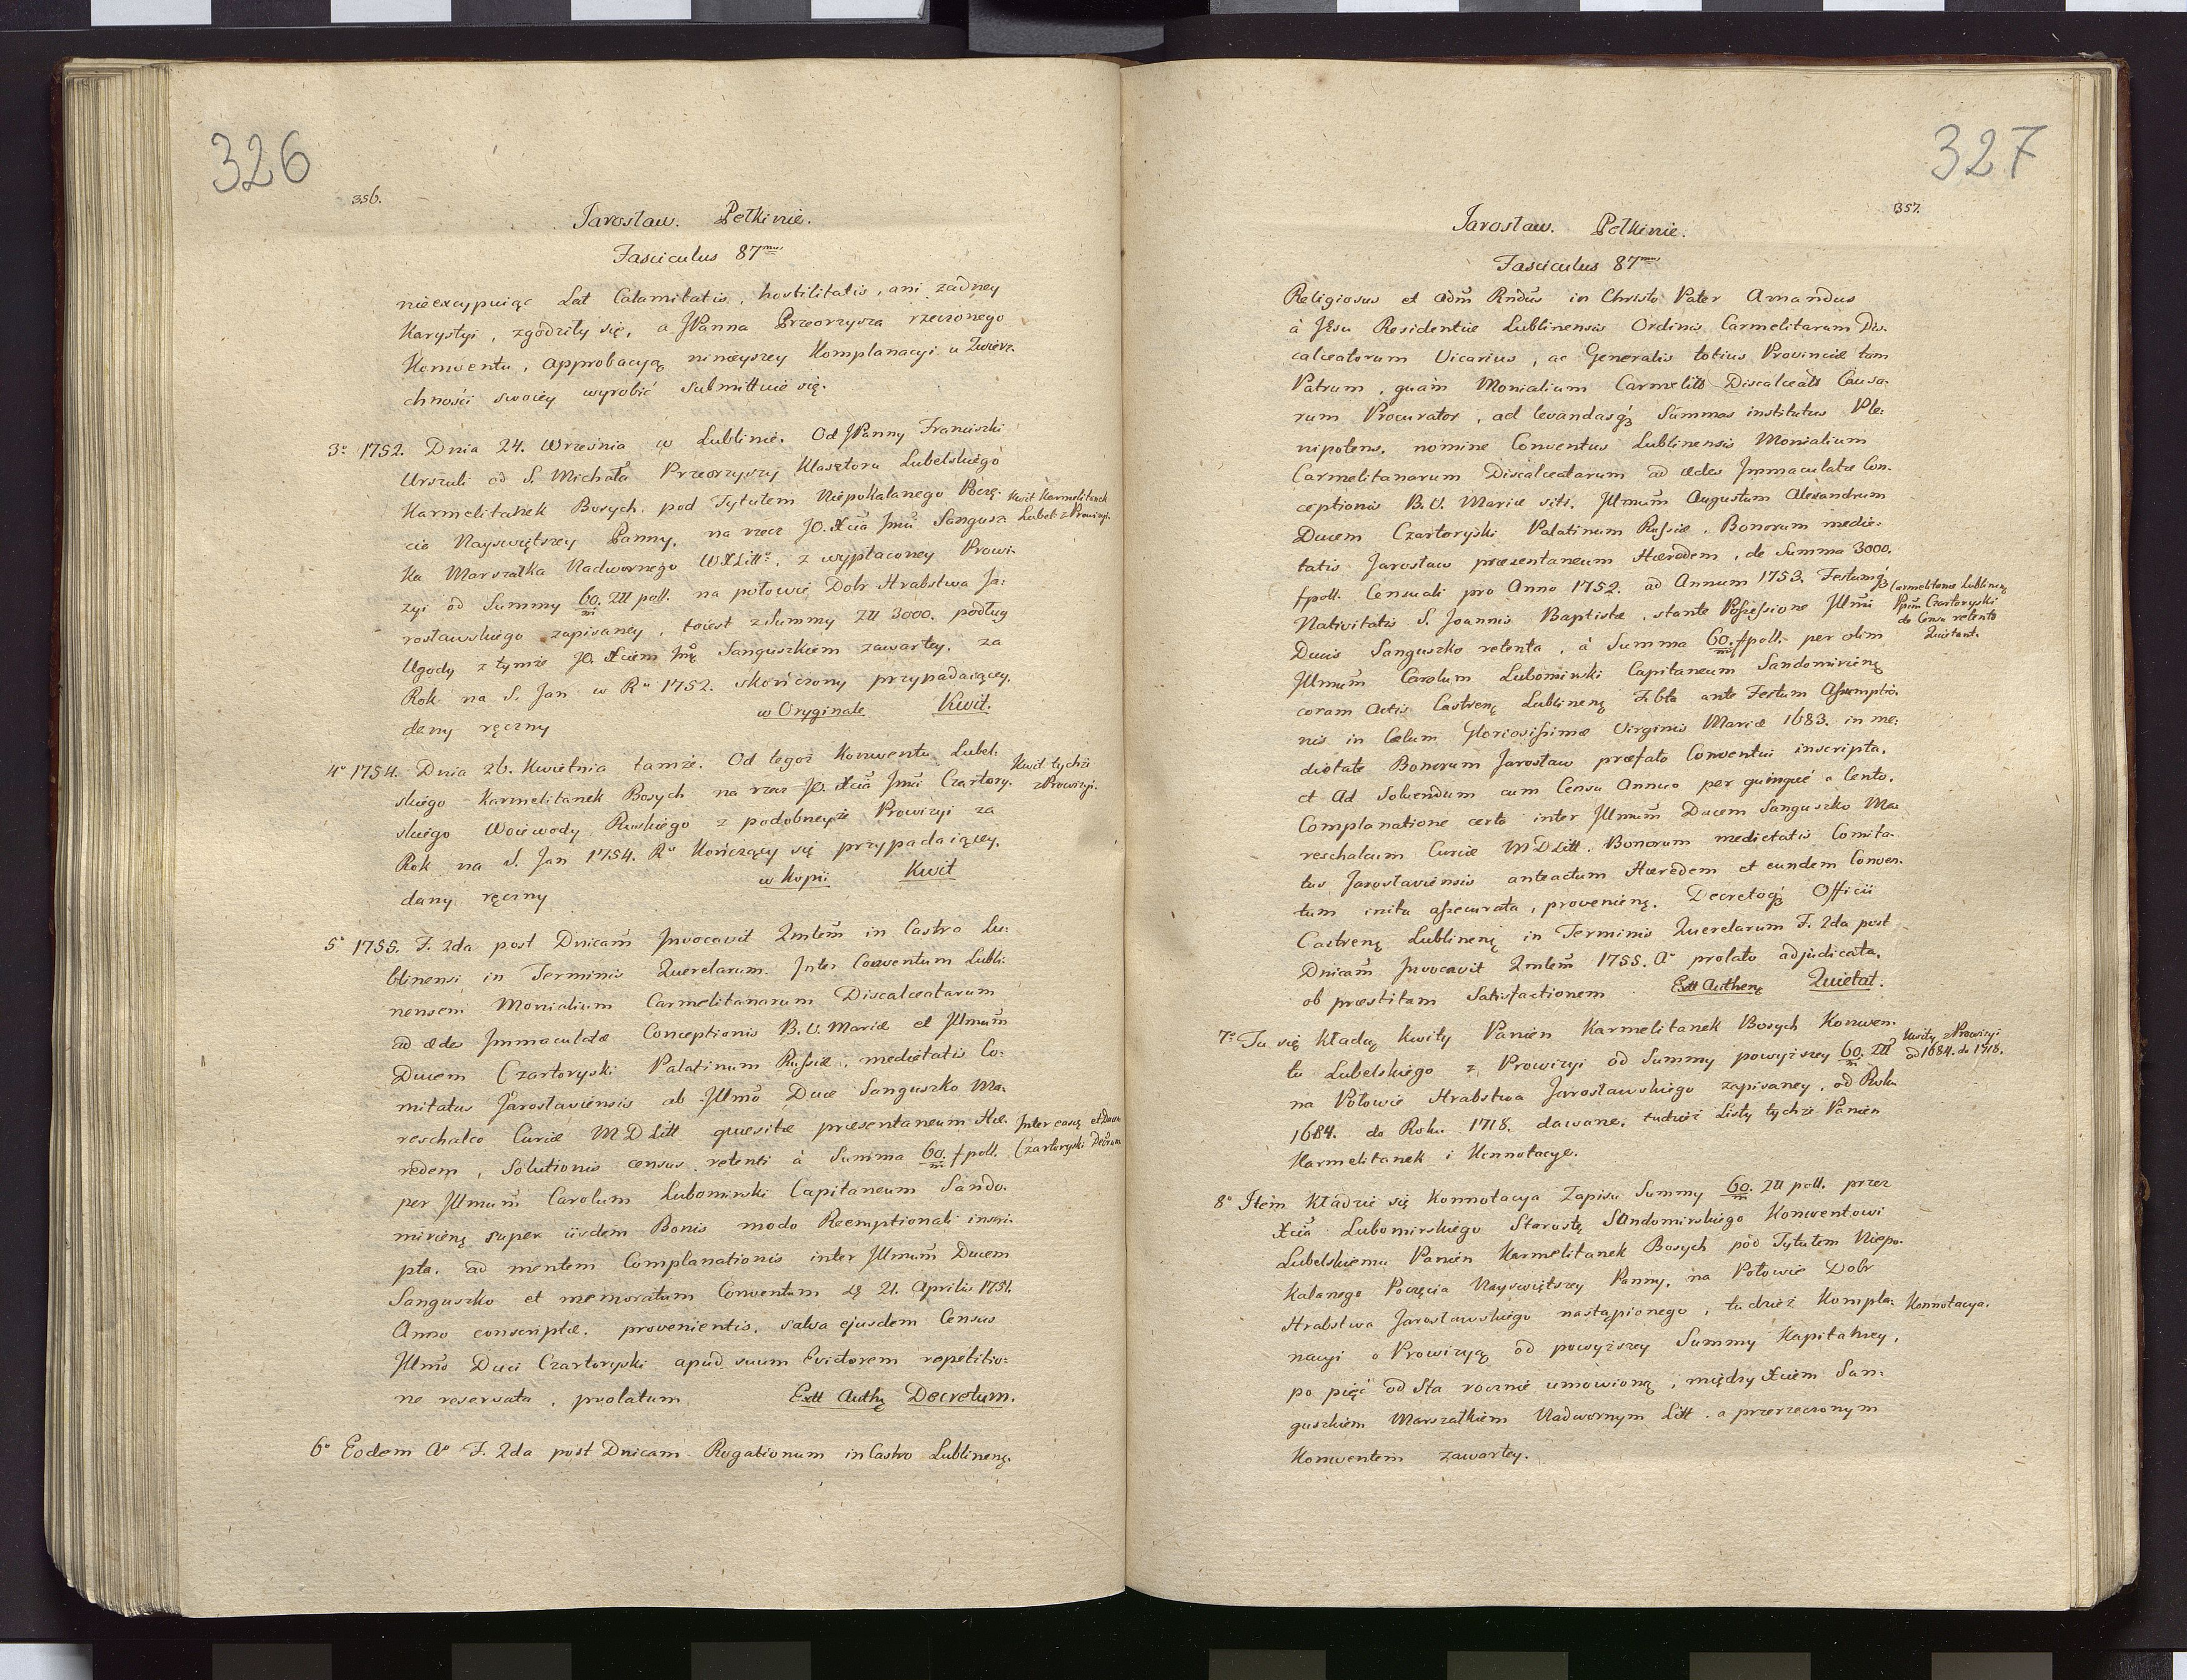 326
356.
Jarosław. Pełkinie.
Fasciculus 87mus
nieexcypuiąc Lat Calamitatis, hostilitatis, ani żadney
Karystyi, zgodziły się, a JPanna Przeorysza rzeczonego
Konwentu, approbacyą ninieyszey Komplanacyi u Zwierz-
chności swoiey wyrobić submittuie się.
3o 1752. Dnia 24. Września w Lublinie. Od JPanny Franciszki
Urszuli od S. Michała Przeoryszy Klasztoru Lubelskiego
Karmelitanek Bosych, pod Tytułem Niepokalanego Poczę-
cia Nayświętszey Panny, na rzecz JO. Xcia Jmci Sangusz-
ka Marszałka Nadwornego WXLitt: z wypłaconey Prowi-
zyi od Summy 60/m. Zll poll. na połowie Dobr Hrabstwa Ja-
rosławskiego zapisaney, toiest z Summy Zll 3000. podług
Ugody z tymże JO. Xciem Jmę Sanguszkiem zawartey, za
Rok na S. Jan w Ru 1752. skończony przypadaiącey,
dany ręczny w Oryginale Kwit.
Kwit Karmelitanek
Lubel: z Prowizyi.
4o 1754. Dnia 26. Kwietnia tamże. Od tegoż Konwentu Lubel-
skiego Karmelitanek Bosych na rzecz JO. Xcia Jmci Czartory-
skiego Woiewody Ruskiego z podobneyże Prowizyi za
Rok na S. Jan 1754. Ru kończący się przypadaiącey,
dany ręczny w Kopii Kwit
Kwit tychże
z Prowizyi.
5o 1755. F. 2da post Dnicam Invocavit Qmlem in Castro Lu-
blinensi in Terminis Querelarum. Inter Conventum Lubli-
nensem Monialium Carmelitanarum Discalceatarum
ad ædes Immaculatæ Conceptionis B.V. Mariæ et Jllmum
Ducem Czartoryski Palatinum Russiæ, medietatis Co-
mitatus Jarosłaviensis ab Jllmo Duce Sanguszko Ma-
reschalco Curiæ MDLitt quesitæ præsentaneum Hæ-
redem, Solutionis census retenti à Summa 60/m. fpoll.
per Jllmum Carolum Lubomirski Capitaneum Sando-
mirieną super iisdem Bonis modo Reemptionali inscri-
pta, ad mentem Complanationis inter Jllmum Ducem
Sanguszko et memoratum Conventum de 21. Aprilis 1751.
Anno conscriptæ, provenientis, salva ejusdem Census
Jllmo Duci Czartoryski apud suum Evictorem repetitio-
ne reservata, prolatum Extt Authę Decretum.
Inter easdę et Ducem
Czartoryski Decretum
6o Eodem Ao F. 2da post Dnicam Rogationum in Castro Lublinenę.
327
357.
Jarosław. Pełkinie.
Fasciculus 87mus
Religiosus et Adm Rndus in Christo Pater Amandus
à Jesu Residentiæ Lublinensis Ordinis Carmelitarum Dis-
calceatorum Vicarius, ac Generalis totius Provinciæ tam
Patrum, quàm Monialium Carmelits Discalceats Causa-
rum Procurator, ad levandasq3 Summas institutus Ple-
nipotens, nomine Conventus Lublinensis Monialium
Carmelitanarum Discalceatarum ad ædes Immaculatæ Con-
ceptionis B.V. Mariæ siti, Jllmum Augustum Alexandrum
Ducem Czartoryski Palatinum Russiæ, Bonorum medie-
tatis Jarosław præsentaneum Hæredem, de Summa 3000.
fpoll. Censuali pro Anno 1752. ad Annum 1753. Festumq3
Nativitatis S. Joannis Baptistæ, stante Possessione Jllmi
Ducis Sanguszko retenta, à Summa 60/m. fpoll. per olim
Jllmum Carolum Lubomirski Capitaneum Sandomirienę
coram Actis Castrenę Lublinenę F. 6ta ante Festum Assumptio-
nis in Cælum Gloriosissimæ Virginis Mariæ 1683. in me-
dietate Bonorum Jarosław præfato Conventui inscripta,
et ad solvendum cum Censu Annuo per quinque a Cento,
Complanatione certa inter Jllmum Ducem Sanguszko Ma-
reschalcum Curiæ MDLitt. Bonorum medietatis Comita-
tus Jarosłaviensis anteactum Hæredem et eundem Conven-
tum inita assecurata, provenienę. Decretoq3 Officii
Castrenę Lublinenę in Terminis Querelarum F. 2da post
Dnicam Invocavit Qmlem 1755. Ao prolato adjudicata,
ob præstitam Satisfactionem Extt Authenę Quietat.
Carmelitanæ Lublinenę
Ppim Czartoryski
de Censu retento
Quietant.
7o Tu się kładą Kwity Panien Karmelitanek Bosych Konwen-
tu Lubelskiego z Prowizyi od Summy powyższey 60/m. Zll
na Połowie Hrabstwa Jarosławskiego zapisaney, od Roku
1684. do Roku 1718. dawane, tudzież Listy tychże Panien
Karmelitanek i Konnotacye.
Kwity z Prowizyi
od 1684. do 1718.
8o Item kładzie się Konnotacya Zapisu Summy 60/m. Zll poll. przez
Xcia Lubomirskiego Starostę Sandomirskiego Konwentowi
Lubelskiemu Panien Karmelitanek Bosych pod Tytułem Niepo-
kalanego Poczęcia Nayświętszey Panny, na Połowie Dobr
Hrabstwa Jarosławskiego nastąpionego, tudzież Kompla-
nacyi o Prowizyą od powyższey Summy Kapitalney,
po pięć od Sta rocznie umowioną, między Xciem San-
guszkiem Marszałkiem Nadwornym Litt. a przerzeczonym
Konwentem zawartey.
Konnotacya.